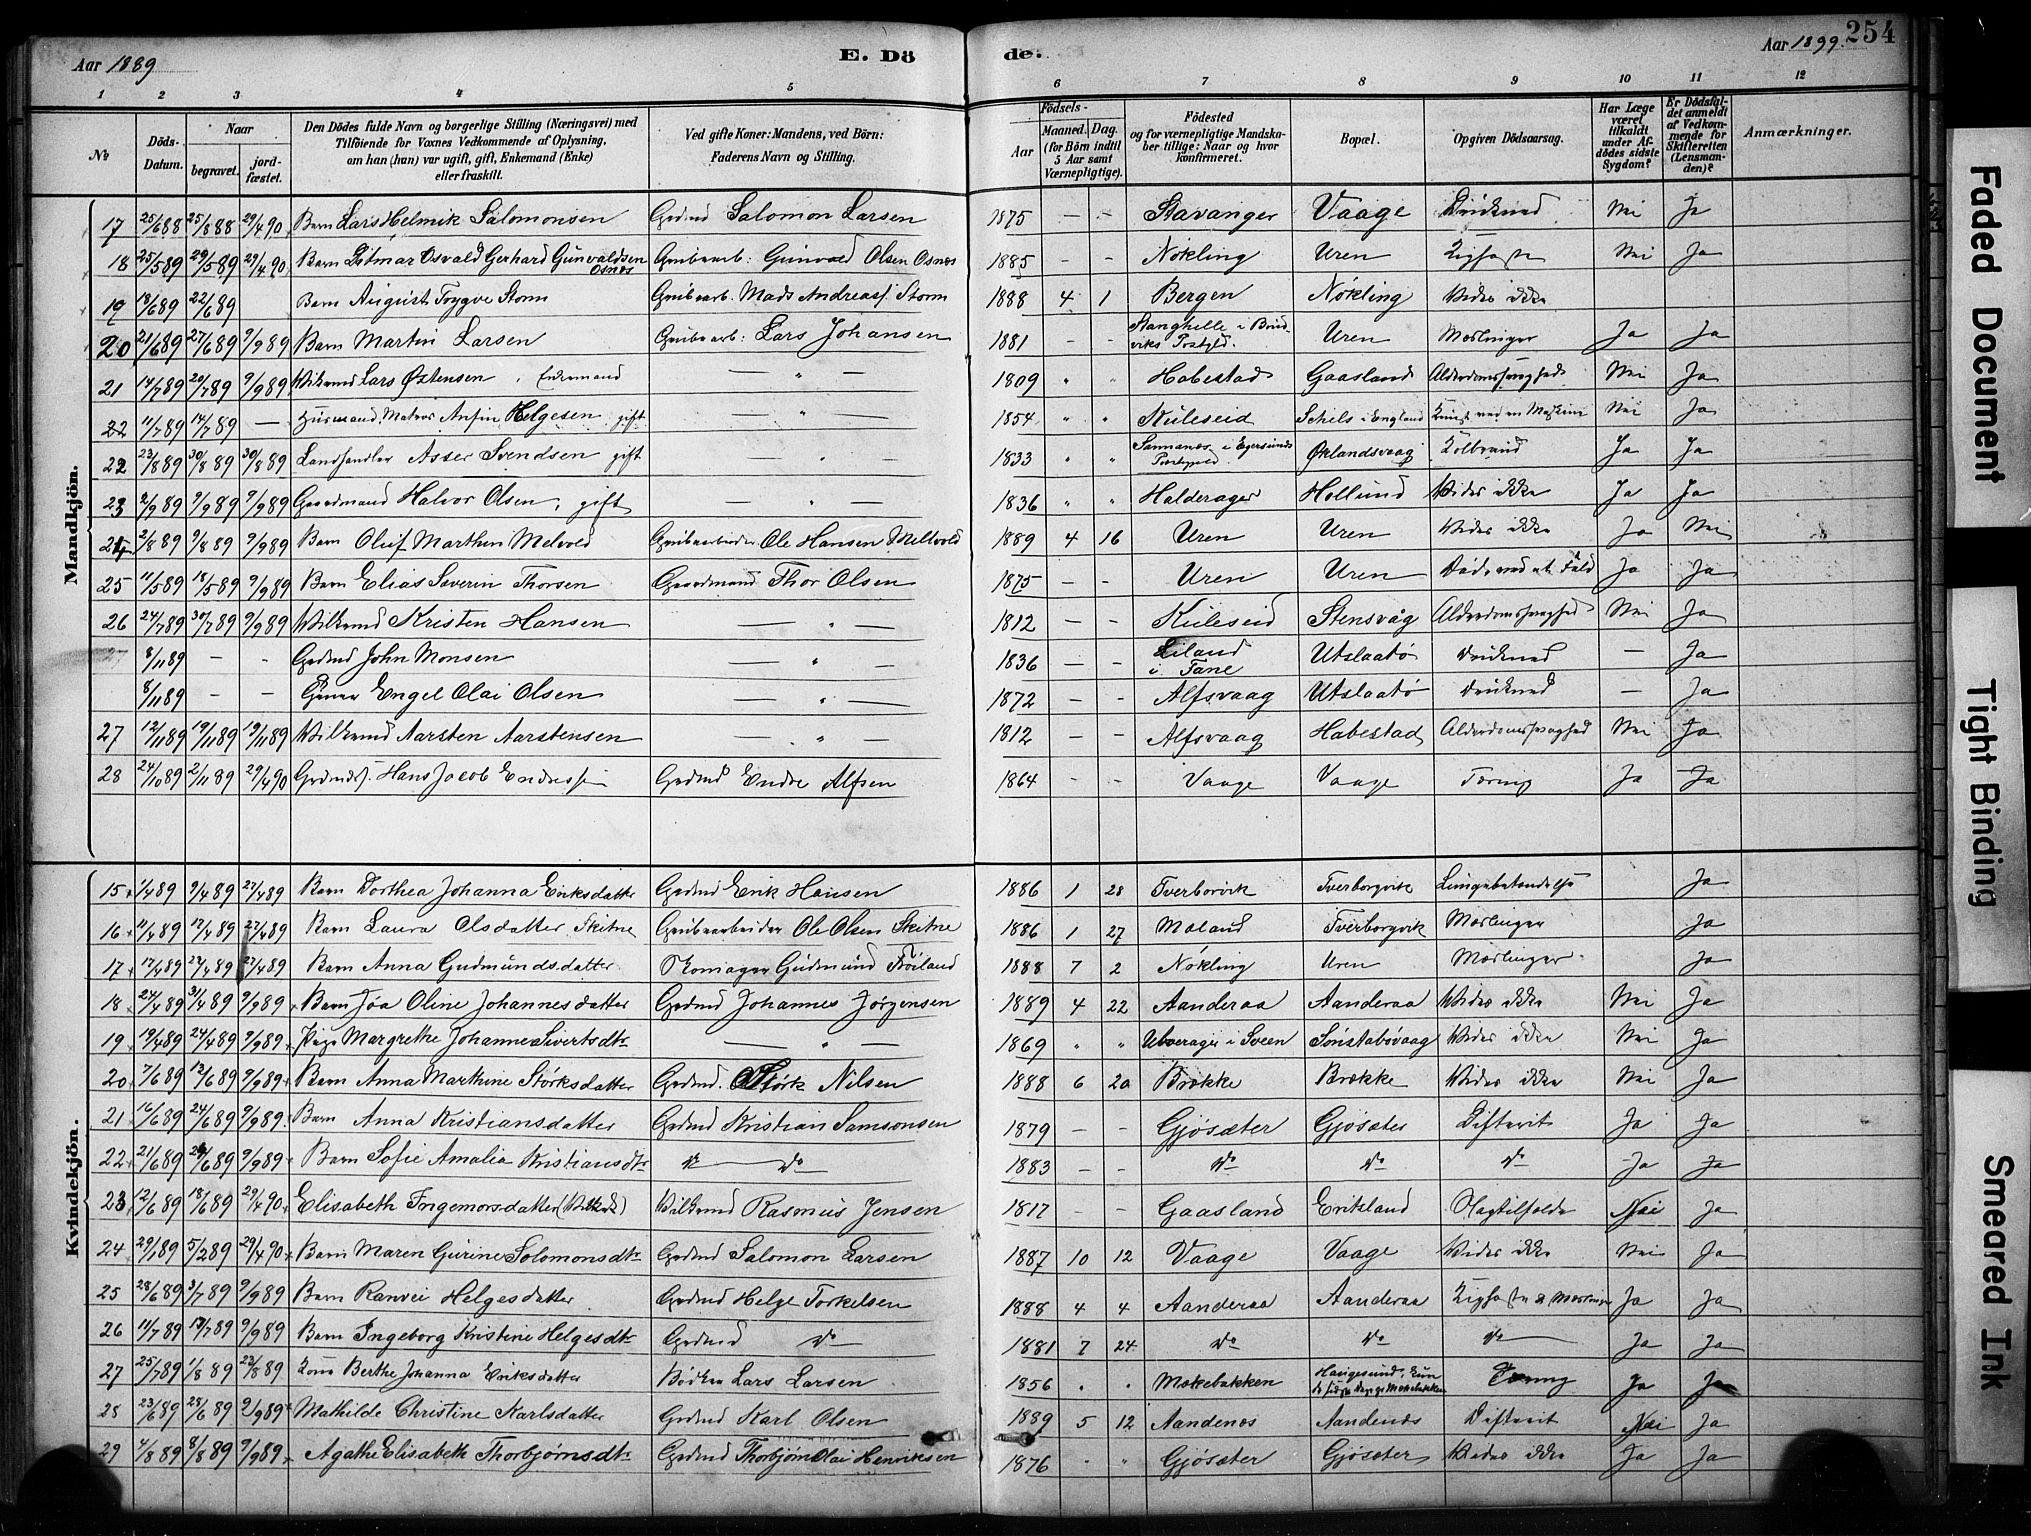 Aar 1889 E. Dö de. Aar 1899. 254
1 2 3 4 5 6 7 8 9 10 11 12
No Döds-Datum. Naar begravet. jord-fæstet. Den Dödes fulde Navn og borgerlige Stilling (Næringsvei) med Tilföiende for Voxnes Vedkommende af Oplysning, om han (hun) var ugift, gift, Enkemand (Enke) eller fraskilt. Ved gifte Koner: Mandens, ved Börn: Faderens Navn og Stilling. Födsels- Aar Maaned. Dag. (for Börn indtil 5 Aar samt Værnepligtige). Födested og for værnepligtige Mandskaber tillige: Naar og hvor konfirmeret. Bopæl. Opgiven Dödsaarsag. Har Læge været tilkaldt under Afdödes sidste Sygdom? Er Dödsfaldet anmeldt af Vedkommende for Skifteretten (Lensmanden)? Anmærkninger.
Mandkjön.
17 25/6 88 25/8 88 29/4 90 Barn Lars Helmik Salomonsen Grdmd Salomon Larsen 1875 – – Stavanger Vaage Druknet Nei Ja
18 25/5 89 29/5 89 29/4 90 Barn Ditmar Osvald Gerhard Gunvaldsen Osnæs Grubearb: Gunvald Olsen Osnæs 1885 – – Nøkling Uren Kighoste Nei Ja
19 18/6 89 22/6 89 Barn August Trygve Storm Grubearb. Mads Andreas Storm 1888 4 1 Bergen Nøkling Vides ikke
20 21/6 89 27/6 89 9/9 89 Barn Martin Larsen Grubearb: Lars Johansen 1881 – – Stanghelle i Bruvviks Prstgld. Uren Mæslinger Ja Ja
21 14/7 89 20/7 89 9/9 89 Vilkmd Lars Østensen, Enkemand — " — 1809 " " Habestad Gaasland Alderdomssvaghed Nei Ja
22 11/7 89 14/7 89 — Husmand, Matros Anfin Helgesen gift — " — 1854 " " Kuleseid Schels i England Knust ved en Maskine Nei Ja
22 23/8 89 30/8 89 30/8 89 Landhandler Asser Svendsen gift — " — 1833 " " i Egersunds Prstgjeld. Øklandsvaag Kolbrand Ja Ja
23 2/9 89 9/9 89 9/9 89 Gaardmand Halvor Olsen, gift — " — 1836 " " Halderager Hollund Vides ikke Ja Ja
24 2/8 89 9/8 89 9/9 89 Barn Oluf Marthin Melvold Grubearbeider Ole Hansen Mellvold 1889 4 16 Uren Uren Vides ikke Ja Nei
25 11/5 89 18/5 89 9/9 89 Barn Elias Severin Thorsen Gaardmand Thor Olsen 1875 – – Uren Uren Døde ved et Fald Ja Ja
26 24/7 89 30/7 89 9/9 89 Vilkmd Kristen Hansen — " — 1812 – – Kuleseid Stensvåg Alderdomssvaghed Nei Ja
27 8/11 89 – – Grdmd John Monsen — " — 1836 – – Eiland i Fane Utslaatø Druknet — Ja
8/11 89 – – Engel Olai Olsen — " — 1872 – – Alfsvaag Utslaatø Druknet — Ja
27 12/11 89 19/11 89 19/11 89 Vilkmd Aarsten Aarstensen — " — 1812 – – Alfsvaag Habestad Alderdomssvaghed Nei Ja
28 24/10 89 2/11 89 29/4 90 Grdmds. Hans Jacob Endresen Grdmd Endre Alfsen 1864 – – Vaage Vaage Tæring Ja Ja
Kvindekjön.
15 1/4 89 9/4 89 27/4 89 Barn Dorthea Johanna Eriksdatter Grdmd Erik Hansen 1886 1 28 Tverborvik Tverborgvik Lungebetændelse Ja
16 11/4 89 17/4 89 27/4 89 Barn Laura Olsdatter Skitne Grubearbeider Ole Olsen Skitne 1886 1 27 Mæland Tverborgvik Mæslinger Ja
17 17/4 89 24/4 89 27/4 89 Barn Anna Gudmundsdatter Skomager Gudmund Frøiland 1888 7 2 Nøkling Uren Mæslinger Ja
18 24/4 89 31/4 89 9/9 89 Barn Joa Oline Johannesdatter Grdmd Johannes Jørgensen 1889 4 22 Aanderaa Aanderaa Vides ikke Nei Ja
19 19/4 89 24/4 89 9/9 89 Pige Margrethe Johanne Sivertsdtr — " — 1869 " " i Sveen Sønstabøvaag Vides ikke Nei Ja
20 7/6 89 12/6 89 9/9 89 Barn Anna Marthine Størksdatter Grdmd. Størk Nilsen 1888 6 20 Brække Brække Vides ikke Nei Ja
21 16/6 89 24/6 89 9/9 89 Barn Anna Kristiansdatter Grdmd Kristian Samsonsen 1879 – – Gjøsæter Gjøsæter Difterit Ja Ja
22 21/6 89 26/6 89 9/9 89 Barn Sofie Amalia Kristiansdtr do do 1883 – – do do do Ja Ja
23 12/6 89 18/6 89 29/4 90 Elisabeth Ingemorsdatter Vilkmd Rasmus Jensen 1817 – – Gaasland Eritsland Slagtilfælde Nei Ja
24 29/1 89 5/2 89 29/4 90 Barn Maren Gurine Solomonsdtr Grdmd Salomon Larsen 1887 10 12 Vaage Vaage Vides ikke Nei Ja
25 28/6 89 3/7 89 9/9 89 Barn Ranvei Helgesdatter Grdmd Helge Torkelsen 1888 4 4 Aanderaa Aanderaa Kighoste & Mæslinger Ja Ja
26 11/7 89 17/7 89 9/9 89 Barn Ingeborg Kristine Helgesdtr Grdmd do 1881 7 24 do do do Ja Ja
27 25/7 89 1/8 89 23/8 89 Kone Berthe Johanna Eriksdatter Bødker Lars Larsen 1856 " " Møkebakken Haugesund, Tæring Ja Ja
28 23/6 89 28/6 89 9/9 89 Mathilde Christine Karlsdatter Grdmd Karl Olsen 1889 5 12 Aandenæs Aandenæs Difterit Nei Ja
29 4/8 89 8/8 89 9/9 89 Agathe Elisabeth Thorbjørnsdtr Grdmd Thorbjørn Olai Henriksen 1876 " " Gjøsæter Gjøsæter Vides ikke Ja Ja
Faded Document
Tight Binding
Smeared Ink